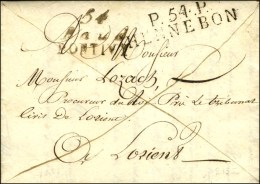 54
P. 54. P.
HENNEBON
Monsieur
Monsieur
Procureur du Roi Près le tribunal
Civil de Lorient
à Lorient